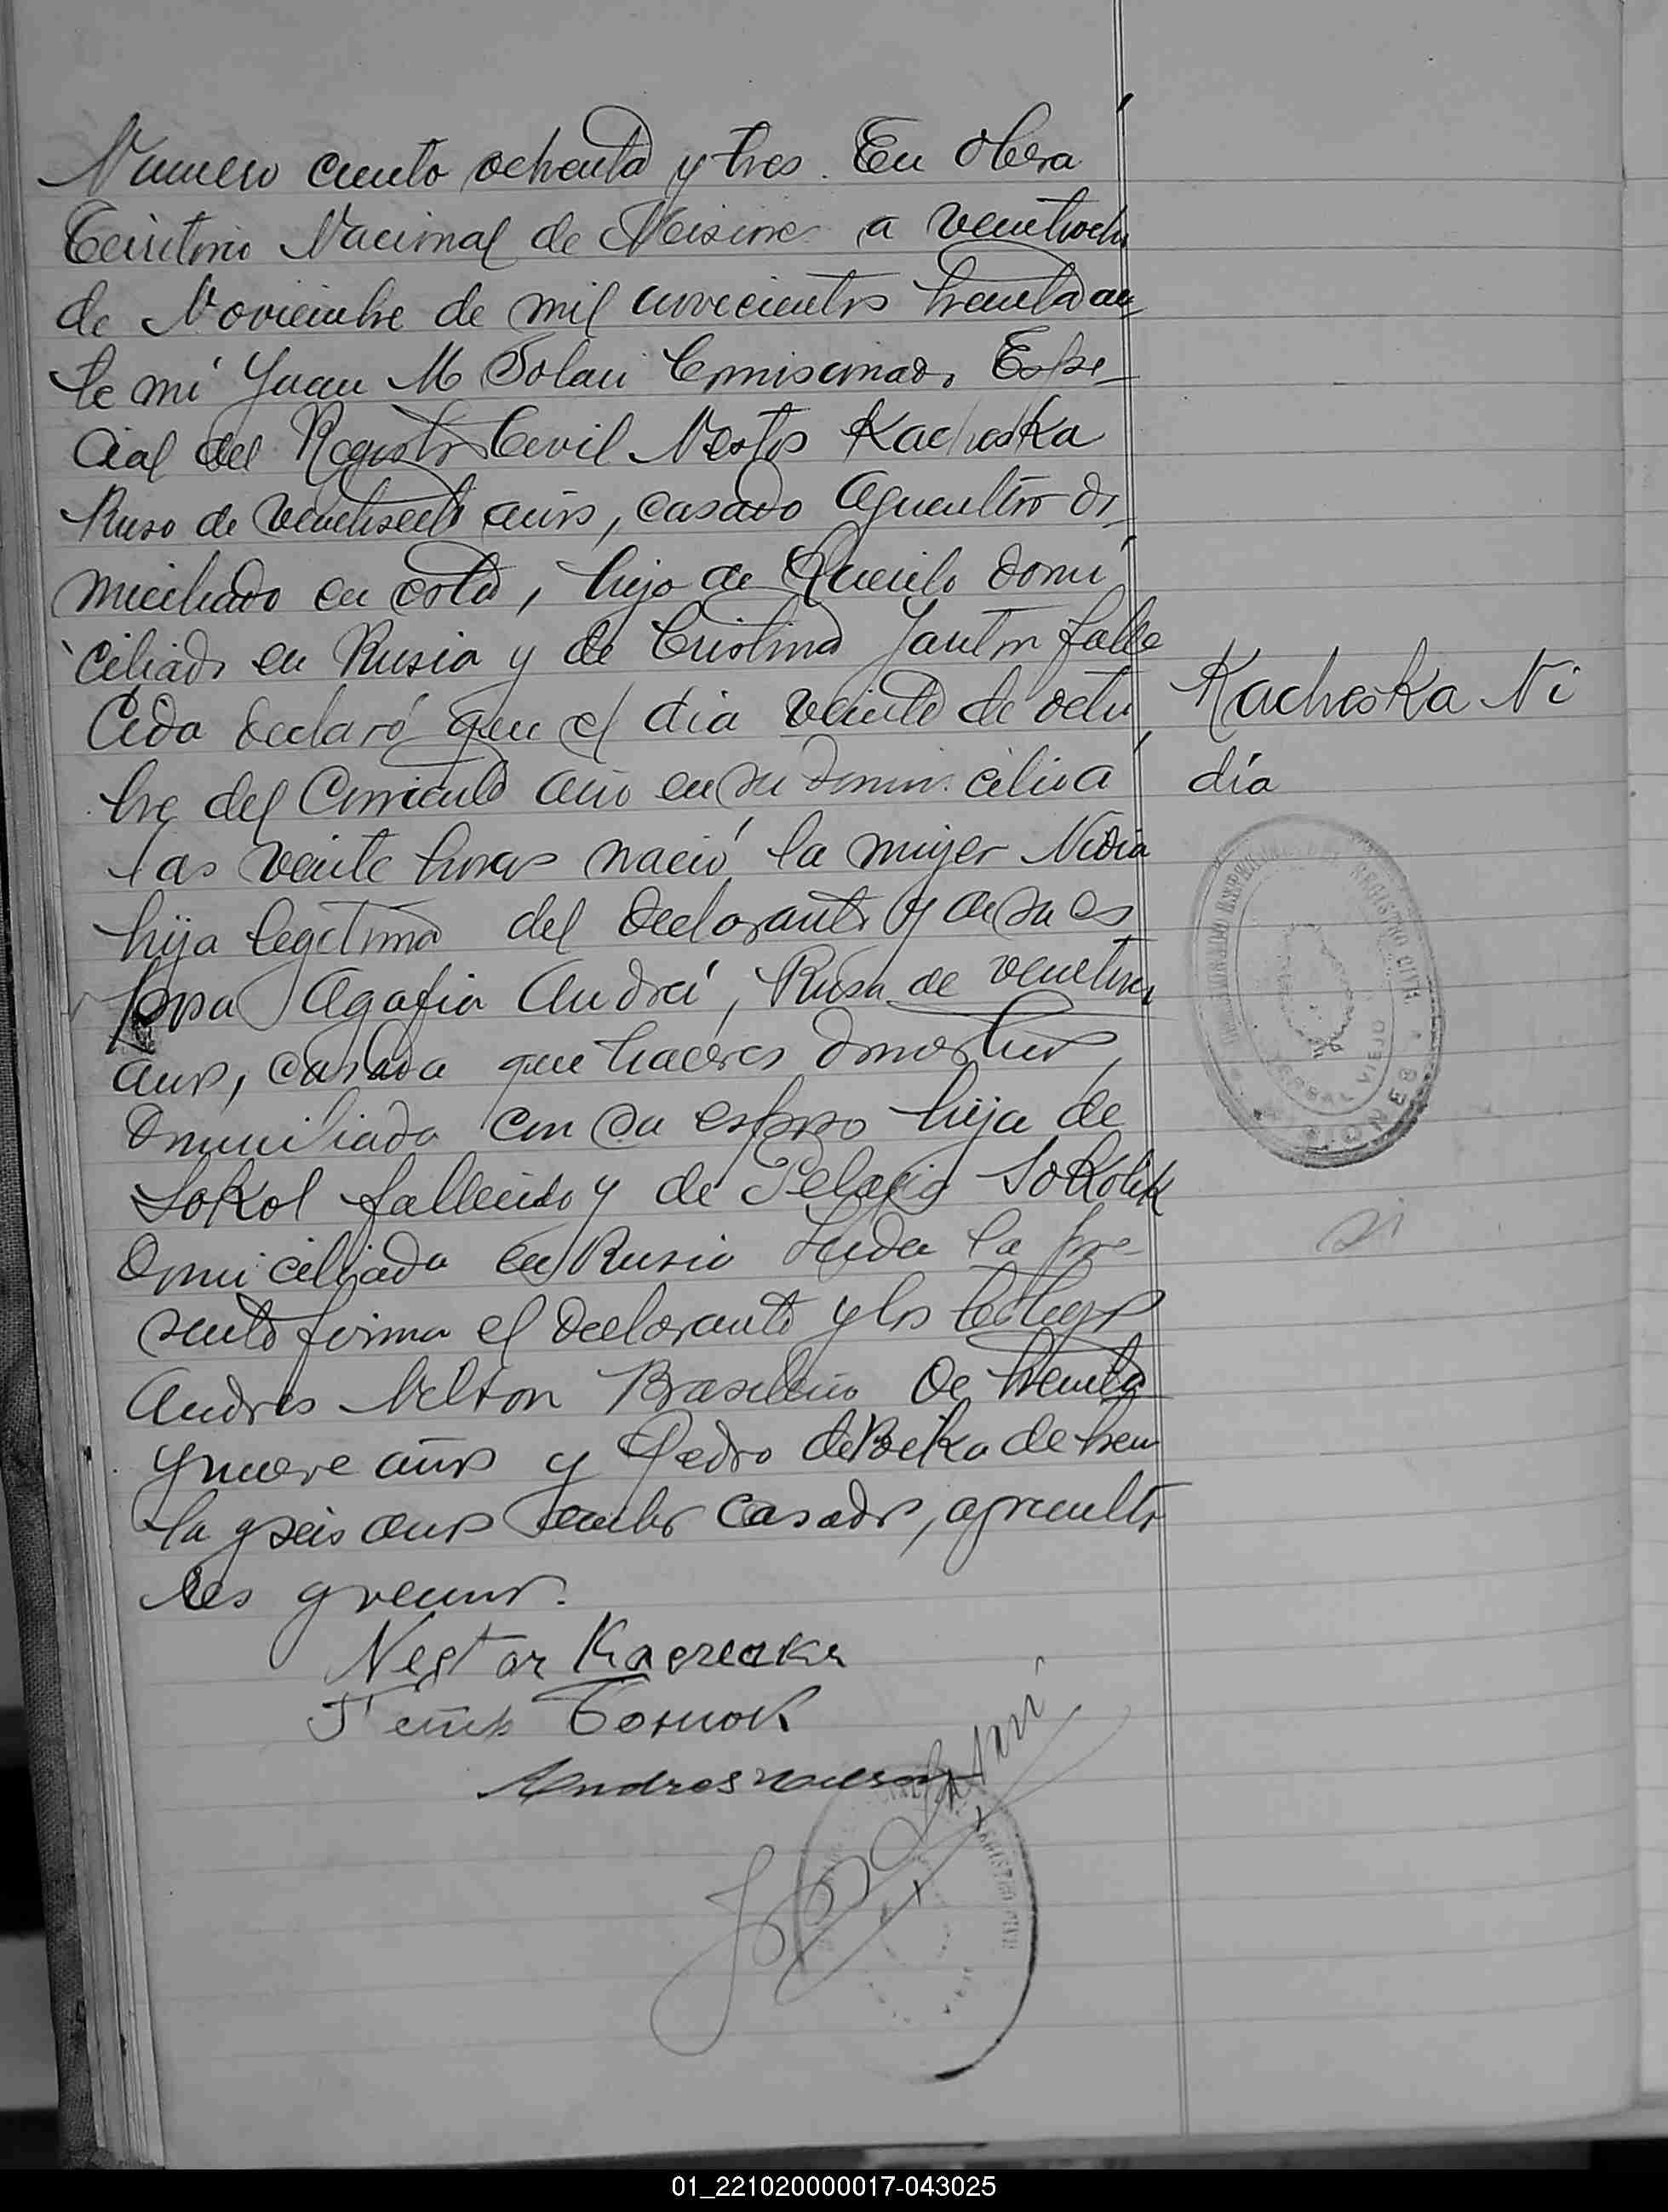 Numero ciento ochenta y tres. En Obera
Territorio Nacional de Misiones a veintiocho
de Noviembre de mil novecientos treinta an-
te mi Juan M Solari Comisionado Espe-
cial del Registro Civil Nestor Kacheska
Ruso de veintisiete años, casado agricultor do-
miciliado en esta, hijo de domi
ciliado en Rusia y de Cristina falle
cida declaró que el dia veinte de octu
bre del corriente año en su domicilio a
las veinte horas nació la mujer Nidia
hija legitima del declarante y de su es
posa Agafia Andrei, Rusa de
años, casada que haceres domesticos,
domiciliada con su esposo hija de
Sokol fallecido y de Pelagia Sokolik
domiciliada en Rusia Leida la pre-
sente firma el declarante y los testigos
Andres Nelson Brasileño de treinta
y nueve años y Pedro de Boika de trein
ta y seis años ambos casados, agriculto
res y vecinos.
Kacheska Ni
día
COMISIONADO ESPECIAL DEL REGISTRO CIVIL
YERBAL VIEJO
MISIONES
Nestor
Andres Nelson
REGISTRO CIVIL
01_221020000017-043025